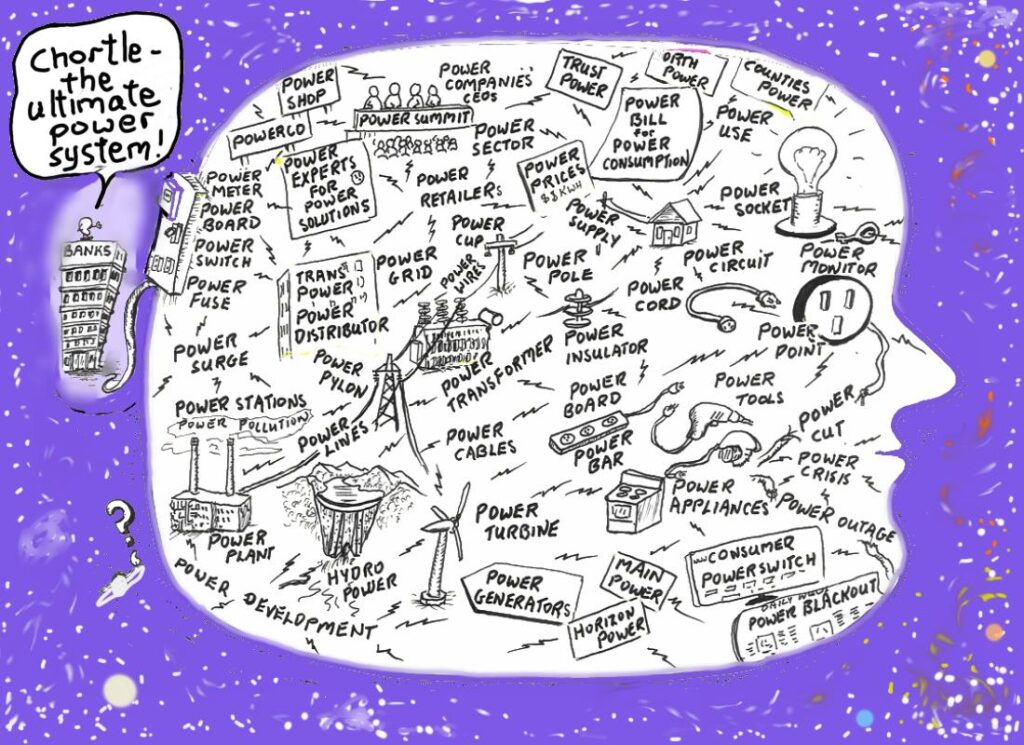 Chortle -
the
ultimate
power
system!
BANKS
POWER
SHOP
POWERCO
POWER
COMPANIES'
CEOs
POWER SUMMIT
POWER
SECTOR
TRUST
POWER
ORTH
POWER
COUNTIES
POWER
POWER
BILL
for
POWER
CONSUMPTION
POWER
USE
POWER
METER
POWER
BOARD
POWER
SWITCH
POWER
FUSE
POWER
EXPERTS
FOR
POWER
SOLUTIONS
POWER
RETAILERS
POWER
PRICES
$$ KWH
POWER
SUPPLY
POWER
SOCKET
POWER
MONITOR
TRANS
POWER
POWER
DISTRIBUTOR
POWER
GRID
POWER
CUP
POWER
WIRES
POWER
POLE
POWER
CORD
POWER
CIRCUIT
POWER
POINT
POWER
SURGE
POWER
PYLON
POWER
TRANSFORMER
POWER
INSULATOR
POWER
BOARD
POWER
BAR
POWER
TOOLS
POWER
CUT
POWER
CRISIS
POWER STATIONS
POWER POLLUTION
POWER
LINES
POWER
CABLES
POWER
APPLIANCES
POWER OUTAGE
POWER
PLANT
HYDRO
POWER
POWER
TURBINE
POWER DEVELOPMENT
POWER
GENERATORS
MAIN
POWER
HORIZON
POWER
CONSUMER
POWERSWITCH
DAILY
POWER BLACKOUT
?